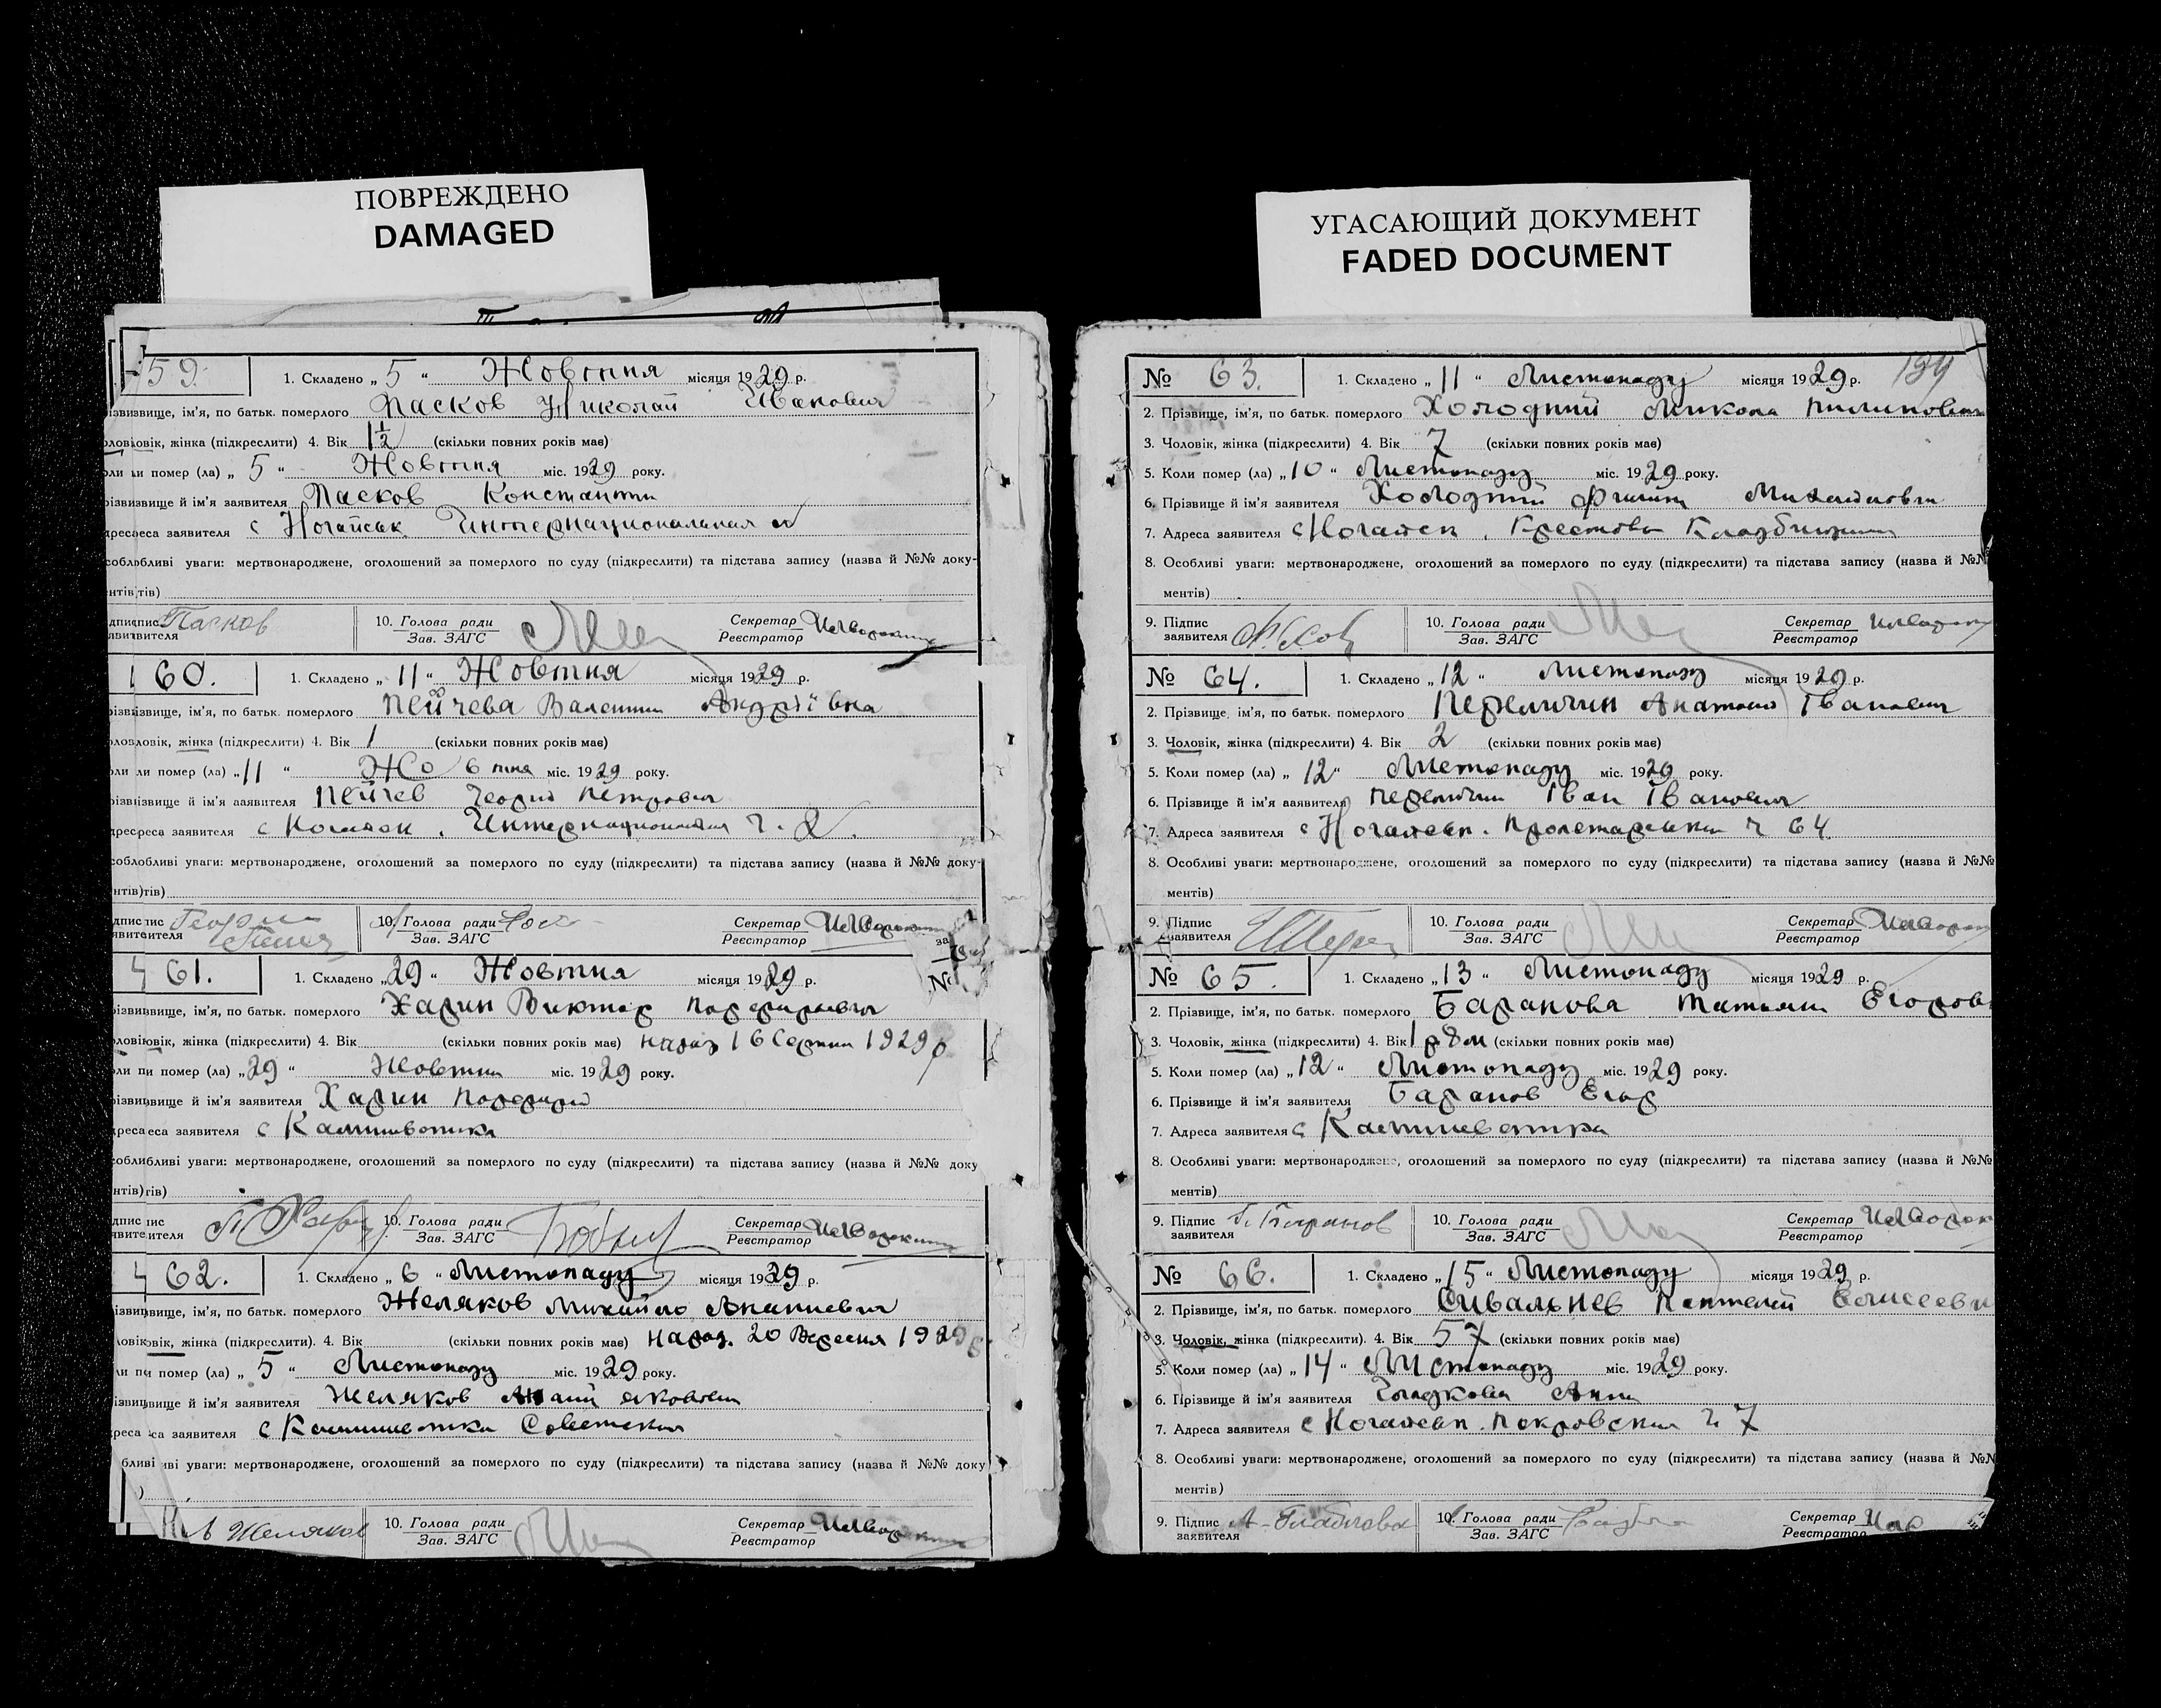 ПОВРЕЖДЕНО
DAMAGED
59.
1. Складено „ 5 “ Жовтня місяця 1929 р.
ізвище, ім’я, по батьк. померлого Пасков Николай Иванович
овік, жінка (підкреслити) 4. Вік 1½ (скільки повних років має)
ли помер (ла) „ 5 “ Жовтня міс. 1929 року.
різвище й ім’я заявителя Пасков Константин
дреса заявителя с Ногайськ Интернациональная
соблбливі уваги: мертвонароджене, оголошений за померлого по суду (підкреслити) та підстава запису (назва й №№ доку-
нтів)
Пасков
10. Голова ради
Зав. ЗАГС
Секретар
Реєстратор
60.
1. Складено „ 11 “ Жовтня місяця 1929 р.
різвище, ім’я, по батьк. померлого Пейчева Валентин Андріївна
ловік, жінка (підкреслити) 4. Вік 1 (скільки повних років має)
ли помер (ла) „ 11 “ Жовтня міс. 1929 року.
різвище й ім’я заявителя Пейчев Петрович
дреса заявителя с Ногайськ. Интернациональная ч. 2.
соблбливі уваги: мертвонароджене, оголошений за померлого по суду (підкреслити) та підстава запису (назва й №№ доку-
нтів)
10. Голова ради
Зав. ЗАГС
Секретар
Реєстратор
61.
1. Складено „ 29 “ Жовтня місяця 1929 р.
різвище, ім’я, по батьк. померлого Харин Виктор Порфирович
ловік, жінка (підкреслити) 4. Вік (скільки повних років має) народ 16 Серпня 1929 р
ли помер (ла) „ 29 “ Жовтня міс. 1929 року.
різвище й ім’я заявителя Харин Порфирий
дреса заявителя с Камишеватка
соблбливі уваги: мертвонароджене, оголошений за померлого по суду (підкреслити) та підстава запису (назва й №№ доку
нтів)
10. Голова ради
Зав. ЗАГС
Секретар
Реєстратор
62.
1. Складено „ 6 “ Листопаду місяця 1929 р.
ізвище, ім’я, по батьк. померлого Желяков Михайло Ананиевич
ловік, жінка (підкреслити). 4. Вік (скільки повних років має) народ. 20 Вересня 1929 р
ли помер (ла) „ 5 “ Листопаду міс. 1929 року.
ізвище й ім’я заявителя Желяков Ананий Яковлевич
реса заявителя с Камишеватка Советская
бливі уваги: мертвонароджене, оголошений за померлого по суду (підкреслити) та підстава запису (назва й №№ доку
)
Желяков
10. Голова ради
Зав. ЗАГС
Секретар
Реєстратор
УГАСАЮЩИЙ ДОКУМЕНТ
FADED DOCUMENT
№ 63.
1. Складено „ 11 “ Листопаду місяця 1929 р.
2. Прізвище, ім’я, по батьк. померлого Холодний Микола Пилипович
3. Чоловік, жінка (підкреслити) 4. Вік 7 (скільки повних років має)
5. Коли помер (ла) „ 10 “ Листопаду міс. 1929 року.
6. Прізвище й ім’я заявителя Холодний Филип Михайлович
7. Адреса заявителя с Ногайськ.
8. Особливі уваги: мертвонароджене, оголошений за померлого по суду (підкреслити) та підстава запису (назва й №№
ментів)
9. Підпис
заявителя
10. Голова ради
Зав. ЗАГС
Секретар
Реєстратор
№ 64.
1. Складено „ 12 “ Листопаду місяця 1929 р.
2. Прізвище, ім’я, по батьк. померлого Перелигин Анатолий Іванович
3. Чоловік, жінка (підкреслити) 4. Вік 2 (скільки повних років має)
5. Коли помер (ла) „ 12 “ Листопаду міс. 1929 року.
6. Прізвище й ім’я заявителя Перелигин Іван Іванович
7. Адреса заявителя с Ногайськ. Пролетарська ч 64
8. Особливі уваги: мертвонароджене, оголошений за померлого по суду (підкреслити) та підстава запису (назва й №№
ментів)
9. Підпис
заявителя
10. Голова ради
Зав. ЗАГС
Секретар
Реєстратор
№ 65.
1. Складено „ 13 “ Листопаду місяця 1929 р.
2. Прізвище, ім’я, по батьк. померлого Баранова Татьяна Егоров
3. Чоловік, жінка (підкреслити) 4. Вік 1 р 8 м (скільки повних років має)
5. Коли помер (ла) „ 12 “ Листопаду міс. 1929 року.
6. Прізвище й ім’я заявителя Баранов Егор
7. Адреса заявителя с Камишеватка
8. Особливі уваги: мертвонароджене, оголошений за померлого по суду (підкреслити) та підстава запису (назва й №№
ментів)
9. Підпис Баранов
заявителя
10. Голова ради
Зав. ЗАГС
Секретар
Реєстратор
№ 66.
1. Складено „ 15 “ Листопаду місяця 1929 р.
2. Прізвище, ім’я, по батьк. померлого Сивальнев Пантелей Елисеевич
3. Чоловік, жінка (підкреслити). 4. Вік 57 (скільки повних років має)
5. Коли помер (ла) „ 14 “ Листопаду міс. 1929 року.
6. Прізвище й ім’я заявителя Гладкова Анна
7. Адреса заявителя с Ногайськ. Покровская ч. 7
8. Особливі уваги: мертвонароджене, оголошений за померлого по суду (підкреслити) та підстава запису (назва й №№
ментів)
9. Підпис А. Гладкова
заявителя
10. Голова ради
Зав. ЗАГС
Секретар
Реєстратор